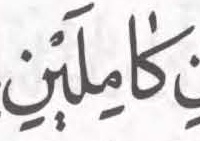 كَامِلَيْنِ